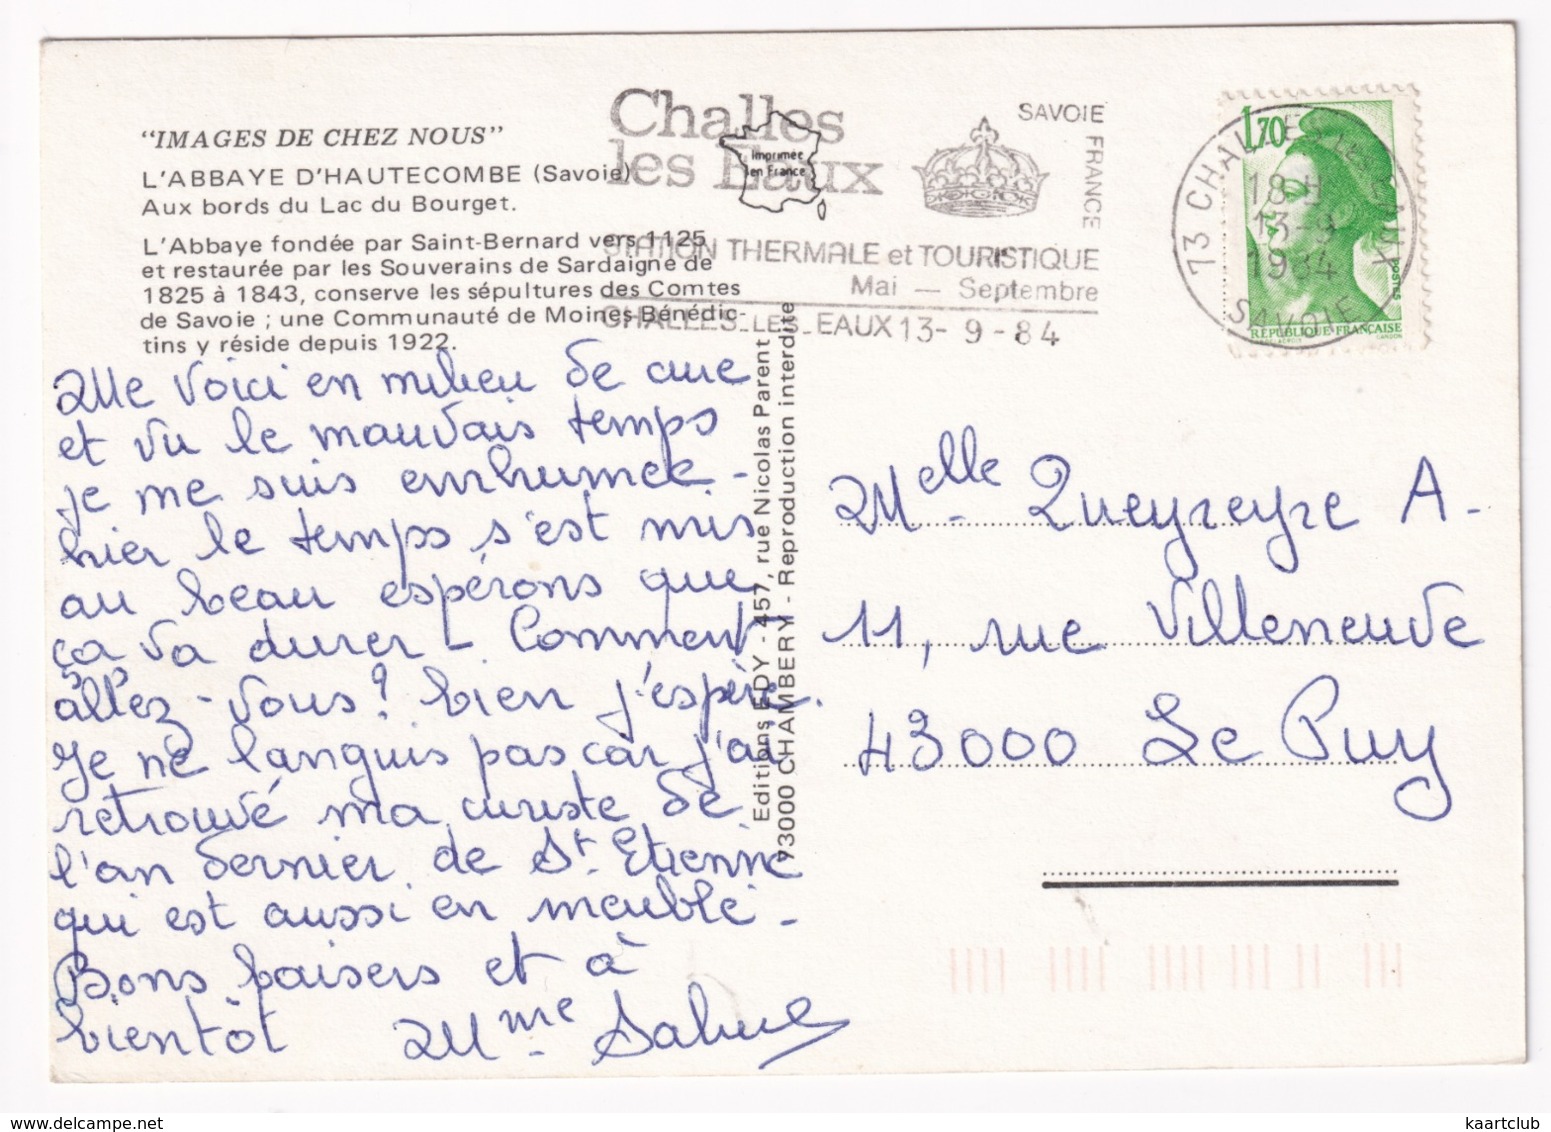 "IMAGES DE CHEZ NOUS"
L'ABBAYE D'HAUTECOMBE (Savoie)
Aux bords du Lac du Bourget.
L'Abbaye fondée par Saint-Bernard vers 1125
et restaurée par les Souverains de Sardaigne de
1825 à 1843, conserve les sépultures des Comtes
de Savoie ; une Communauté de Moines Bénédic-
tins y réside depuis 1922.
Challes
les Eaux
Imprimée
en France
SAVOIE
FRANCE
STATION THERMALE et TOURISTIQUE
Mai — Septembre
CHALLES-LES-EAUX 13-9-84
1,70
73 CHALLES LES EAUX
18 H
13-9
1984
SAVOIE
POSTES
REPUBLIQUE FRANÇAISE
GANDON
Me voici en milieu de cure
et vu le mauvais temps
je me suis enrhumée -
hier le temps s'est mis
au beau espérons que
ça va durer - Comment
allez-vous ? bien j'espère.
Je ne languis pas car j'ai
retrouvé ma curiste de
l'an dernier de St. Etienne
qui est aussi en meublé -
Bons baisers et à
bientôt Mme
Editions EDY - 457, rue Nicolas Parent
73000 CHAMBERY - Reproduction interdite
Melle Queyreyre A -
11, rue Villeneuve
43000 Le Puy
kaartclub